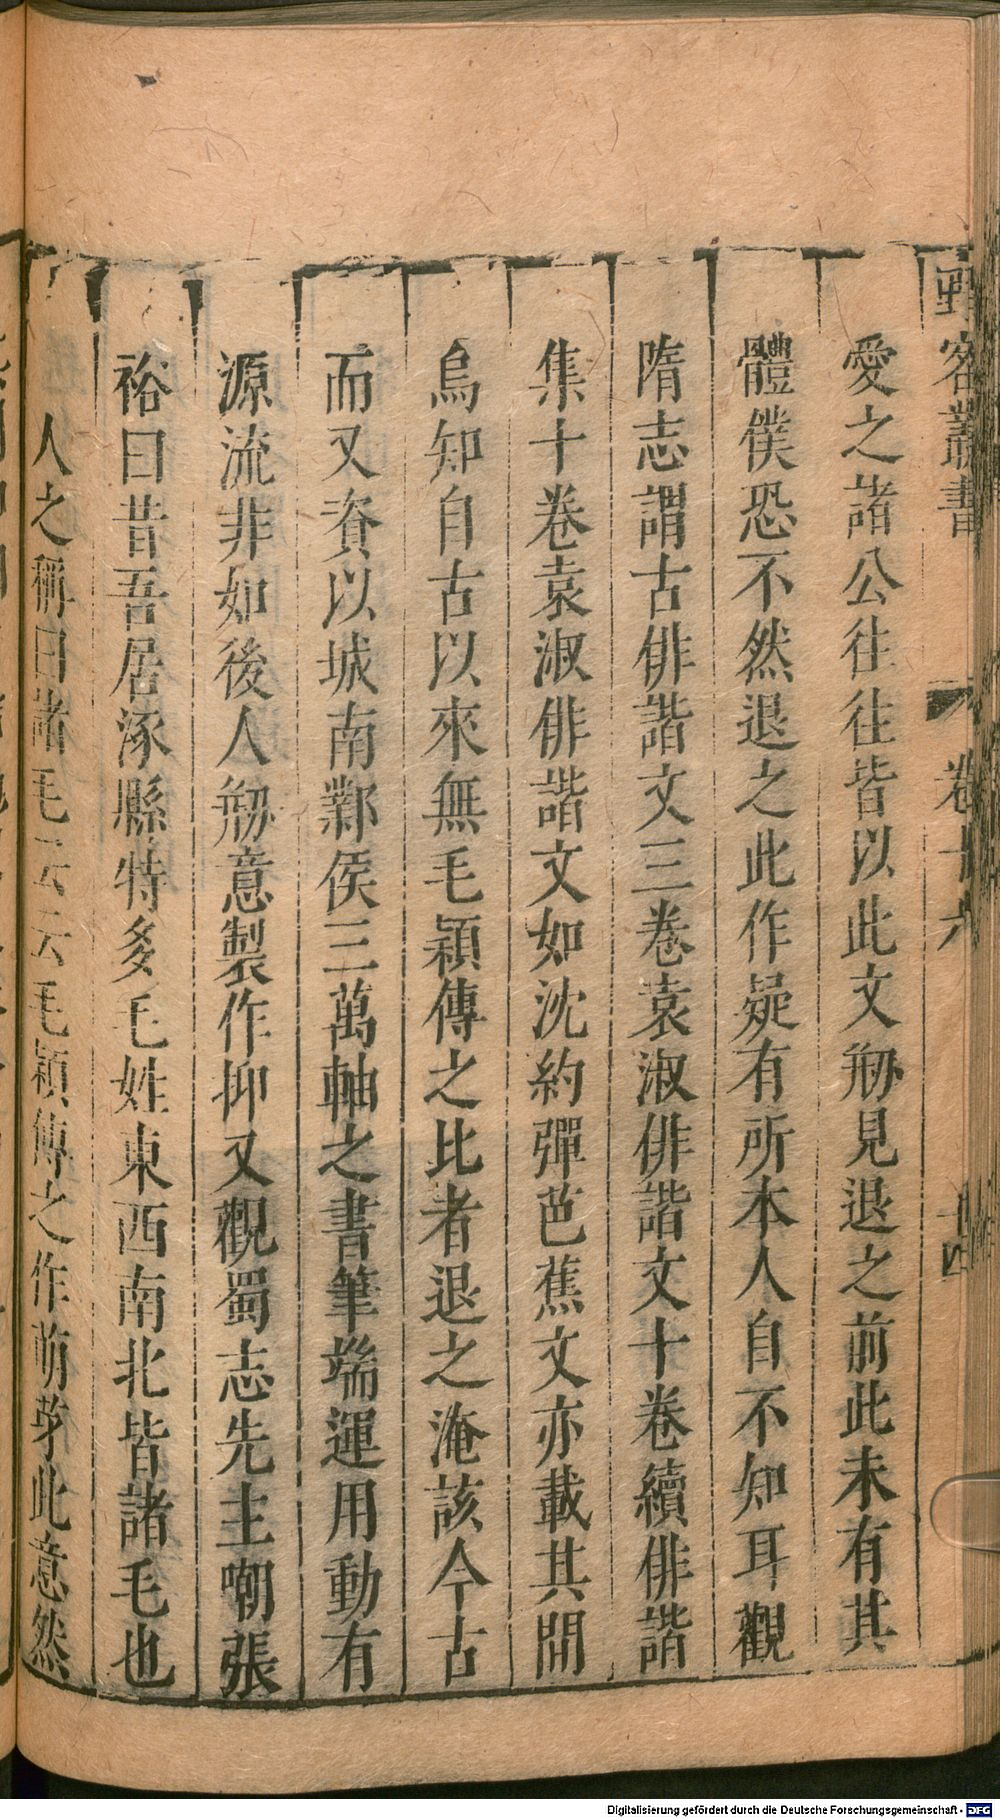 野客叢書 卷十六 十四
愛之諸公往往皆以此文剏見退之前此未有其
體僕恐不然退之此作疑有所本人自不知耳觀
隋志謂古俳諧文三卷袁淑俳諧文十卷續俳諧
集十卷袁淑俳諧文如沈約彈芭蕉文亦載其間
烏知自古以來無毛穎傳之比者退之淹該今古
而又資以城南鄴侯三萬軸之書筆端運用動有
源流非如後人剏意製作抑又觀蜀志先主嘲張
裕曰昔吾居涿縣特多毛姓東西南北皆諸毛也
人之稱曰諸毛云云毛穎傳之作萌芽此意然
Digitalisierung gefördert durch die Deutsche Forschungsgemeinschaft - DFG